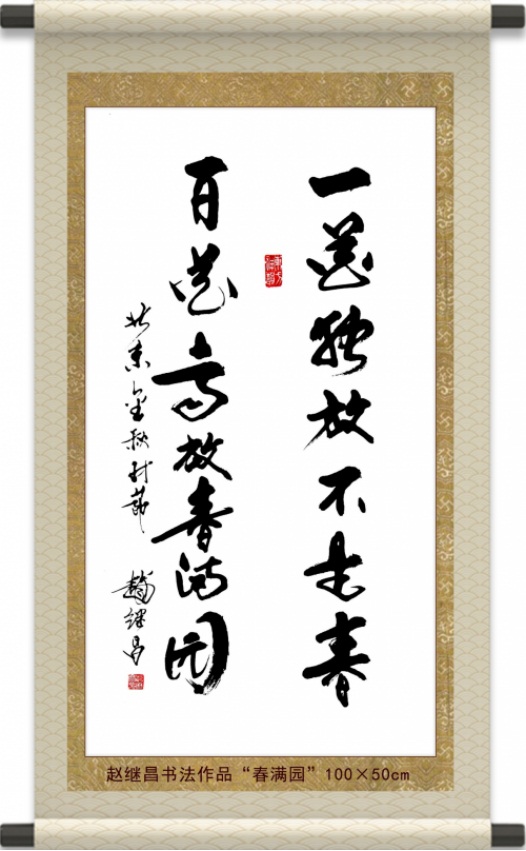 一花独放不是春
百花齐放春满园
北京金秋时节
赵继昌
赵继昌书法作品“春满园”100×50cm